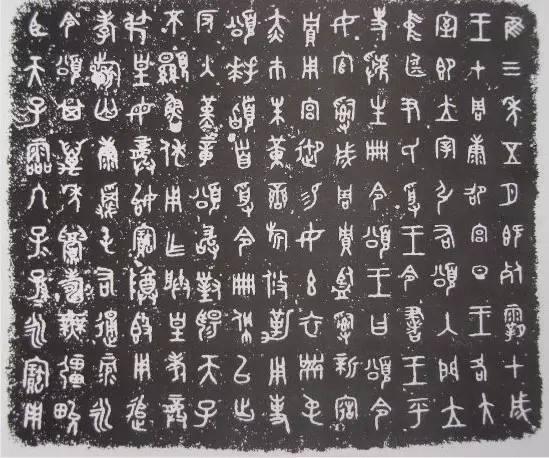 隹三年五月既死霸甲戌
王才周康卲宮旦王各大
室即立宰引右頌入門立
中廷尹氏受王令書王乎
史虢生冊令頌王曰頌令
女官𤔲成周貯監𤔲新造
貯用宮御易女玄衣黹屯
赤巿朱黃䜌旂攸勒用事
頌拜𩒨首受令冊佩以出
反入堇章頌敢對揚天子
不顯魯休用乍朕皇考龔
弔皇母龔始寶尊𣪘用追
孝祈匄康𩛥屯右通彔永
令頌其萬年眉壽無疆畯
臣天子霝冬子孫永寶用